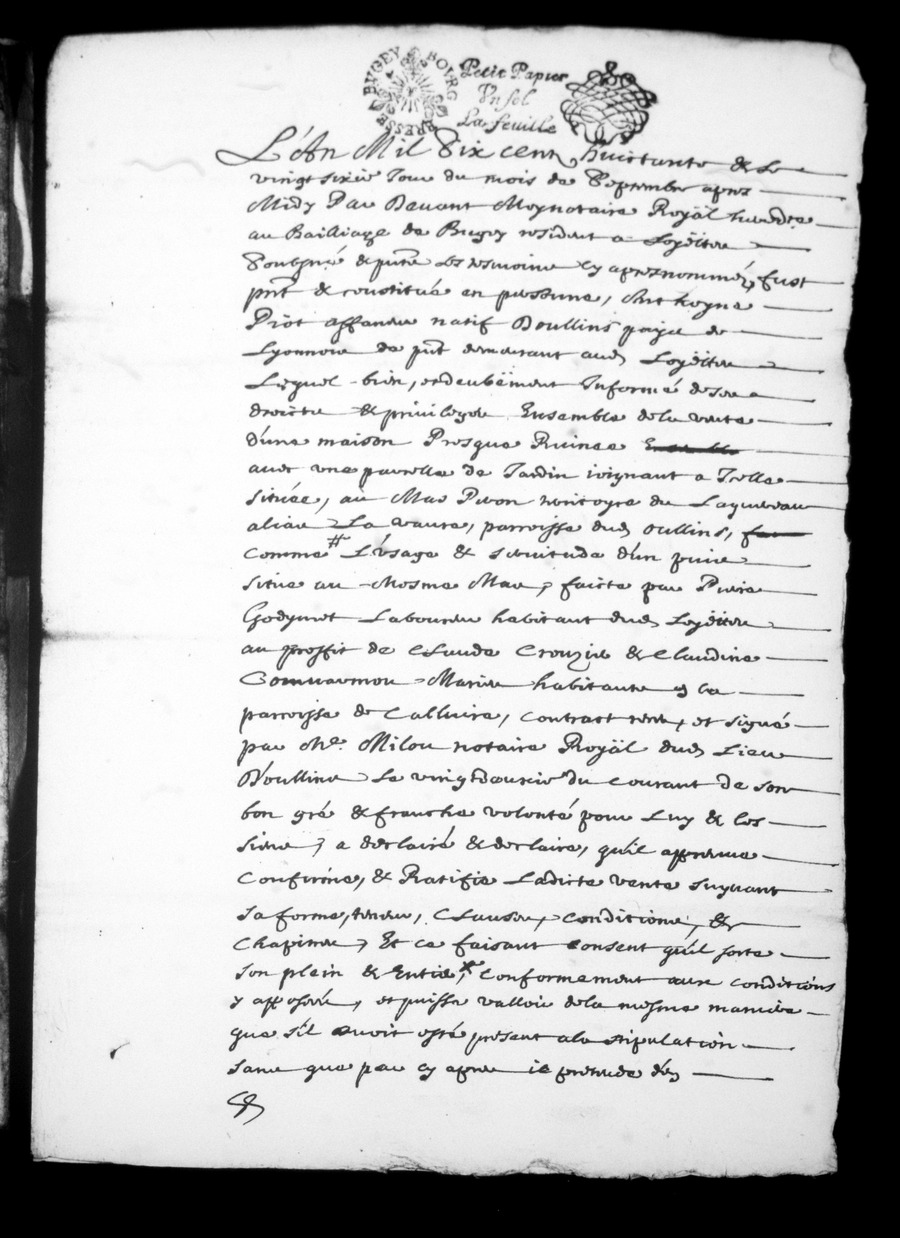 BOURG BRESSE BUGEY
Petit Papier
Un sol
La feuille
L'An Mil Six cent huictante & le
vingt sixie Jour du mois de Septembre apres
Midy Par Devant Moy notaire Royäl heredre
au Bailliage de Bugey resident a Loyëttes
Soubsné & pntz les tesmoins cy apres nommés, fust
pnt & constitué en personne, Anthoyne
Piot affaneur natif Doullins paÿs de
Lyonnois de pnt demeurant aud Loyëttes
Lequel bien, et deubëment Informé de ses
droicts & privileges Ensemble de la vente
d'une maison Presque Ruinee
avec une parcelle de Jardin joignant a Icelle
située, au Mas Piron territoyre du
alias La vaure, parroisse dud oullins,
comme # L'usage & servitude d'un puis
situé au Mesme Mas, faicte par Pierre
Godymet Laboureur habitant dud Loyëttes
au proffit de Claude Crouzier & Claudine
Mariés habitants en la
parroisse de Calluire, contract receu, et signé
par Me. Milou notaire Royäl dud Lieu
D'oullins Le vingtdeuxie du courant de son
bon gré & franche volonté pour Luy & les
siens, a declairé & declaire, qu'il appreuve
Confirme, & Ratifie Ladicte vente suyvant
sa forme, teneur, Clauses, conditions, &
Chapitres, Et ce faisant consent qu'il sorte
son plein & Entier, x conformement aux conditions
y apposées, et puisse valloir de la mesme maniere
que s'il avoit esté present a la stipulation
sans que par cy apres il pretende des